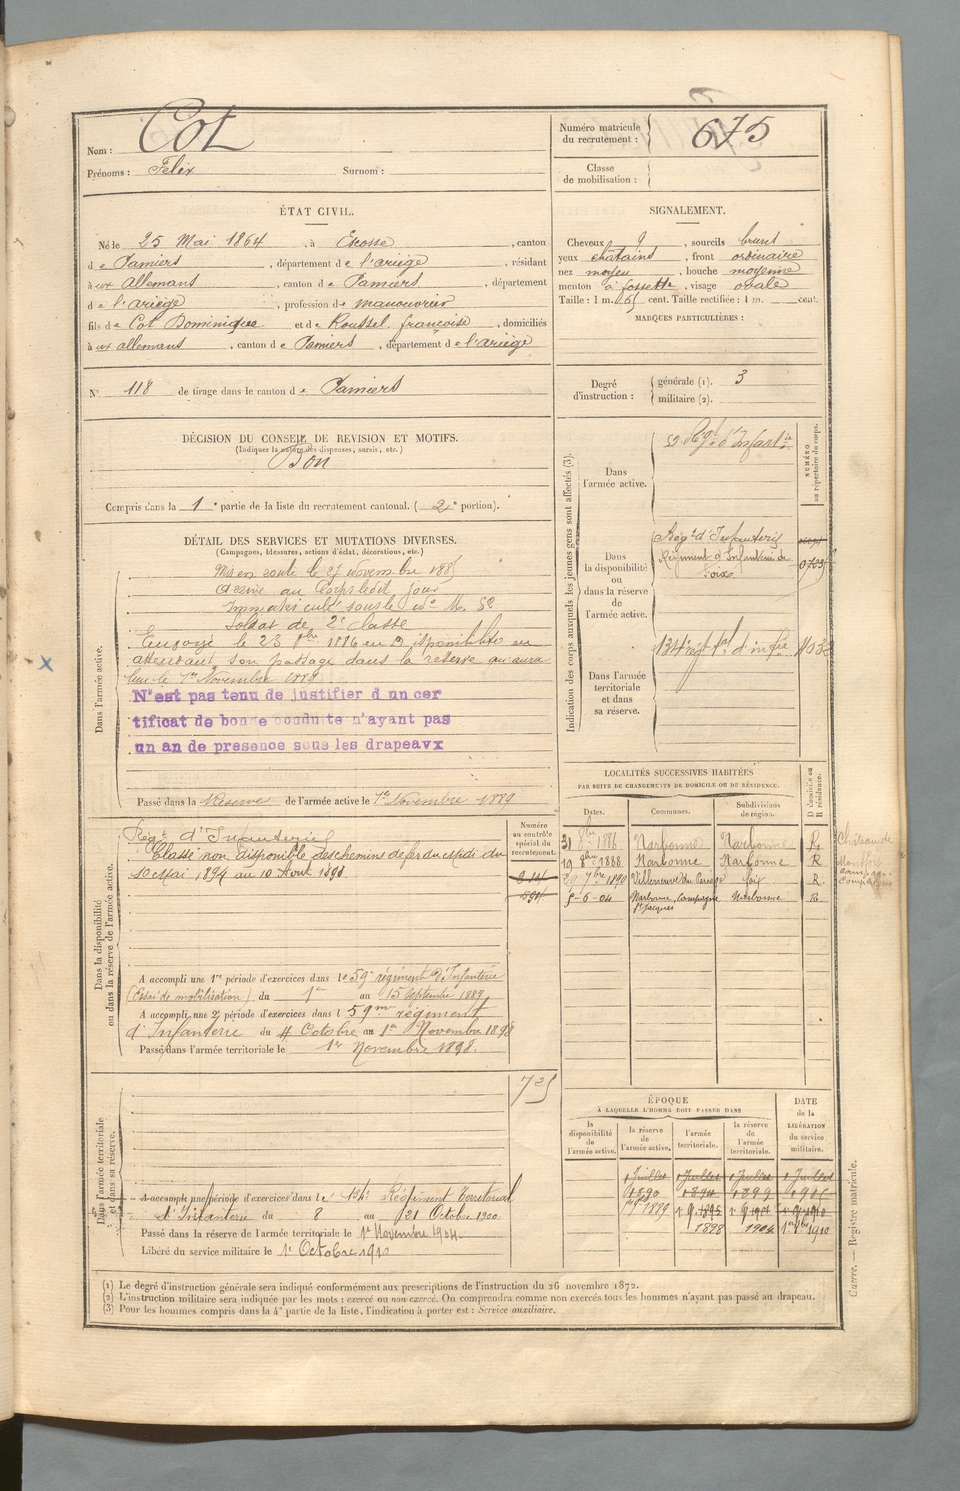 Nom : Cot
Prénoms : Felix Surnom :
Numéro matricule du recrutement : 675
Classe de mobilisation :
ÉTAT CIVIL.
Né le 25 Mai 1864, à Escosse, canton
de Pamiers, département de l'ariège, résidant
à ux Allemans, canton de Pamiers, département
de l'ariège, profession de manouvrier
fils de Cot Dominique et de Roussel françoise, domiciliés
à ux allemans, canton de Pamiers, département de l'ariège
N° 118 de tirage dans le canton de Pamiers
SIGNALEMENT.
Cheveux , sourcils bruns
yeux chatains, front ordinaire
nez moyen, bouche moyenne
menton à fossette, visage ovale
Taille : 1 m. 65 cent. Taille rectifiée : 1 m. cent.
MARQUES PARTICULIÈRES :
Degré d'instruction : générale (1). 3
militaire (2).
DÉCISION DU CONSEIL DE REVISION ET MOTIFS.
(Indiquer la nature des dispenses, sursis, etc.)
Bon
Compris dans la 1e partie de la liste du recrutement cantonal. (2e portion).
DÉTAIL DES SERVICES ET MUTATIONS DIVERSES.
(Campagnes, blessures, actions d'éclat, décorations, etc.)
Dans l'armée active.
Mis en route le 27 novembre 1885
Arrivé au Corps ledit jour
Immatriculé sous le No M. 52
Soldat de 2e classe
Envoyé le 23 8bre 1886 en Disponibilité en
attendant son passage dans la réserve qui aura
lieu le 1er Novembre 1889
N'est pas tenu de justifier d un cer
tificat de bonne conduite n'ayant pas
un an de presence sous les drapeaux
Passé dans la Réserve de l'armée active le 1er Novembre 1889
Indication des corps auxquels les jeunes gens sont affectés (3).
NUMÉRO au répertoire du corps.
Dans l'armée active.
59 Régt d'Infantie
Dans la disponibilité ou dans la réserve de l'armée active.
Régt d'Infanterie
Régiment d'Infanterie de Foix
Dans l'armée territoriale et dans sa réserve.
134 régt tal d'infie
LOCALITÉS SUCCESSIVES HABITÉES
PAR SUITE DE CHANGEMENTS DE DOMICILE OU DE RÉSIDENCE.
Dates. Communes. Subdivisions de région. D domicile ou R résidence.
31 8bre 1886 Narbonne Narbonne R
19 8bre 1888 Narbonne Narbonne R
7bre 1890 Villeneuve du Pariage foix R
5-6-04 Narbonne, Campagne St Jacques Narbonne R
Château de Montfort
Dans la disponibilité ou dans la réserve de l'armée active.
Numéro au contrôle spécial du recrutement.
Régt d'Infanterie
Classé non disponible des chemins de fer du Midi du
10 Mai 1894 au 10 Aout 1898
A accompli une 1re période d'exercices dans le 59e régiment d'Infanterie
(Essai de mobilisation) du 1er au 15 septembre 1889.
A accompli une 2e période d'exercices dans l 59me régiment
d'Infanterie du 4 Octobre au 1er Novembre 1898
Passé dans l'armée territoriale le 1er Novembre 1898.
725
Dans l'armée territoriale et dans sa réserve.
A accompli une période d'exercices dans le 134e Régiment Territorial
d'Infanterie du 8 au 21 Octobre 1900
Passé dans la réserve de l'armée territoriale le 1er Novembre 1904.
Libéré du service militaire le 1er Octobre 1910
ÉPOQUE
À LAQUELLE L'HOMME DOIT PASSER DANS
DATE de la LIBÉRATION du service militaire.
la disponibilité de l'armée active. la réserve de l'armée active. l'armée territoriale. la réserve de l'armée territoriale.
1 Juillet 1 Juillet 1 Juillet 1 Juillet
1890 1894 1899
1889 1895
1898 1904 1910
(1) Le degré d'instruction générale sera indiqué conformément aux prescriptions de l'instruction du 26 novembre 1872.
(2) L'instruction militaire sera indiquée par les mots : exercé ou non exercé. On comprendra comme non exercés tous les hommes n'ayant pas passé au drapeau.
(3) Pour les hommes compris dans la 4e partie de la liste, l'indication à porter est : Service auxiliaire.
Registre matricule.